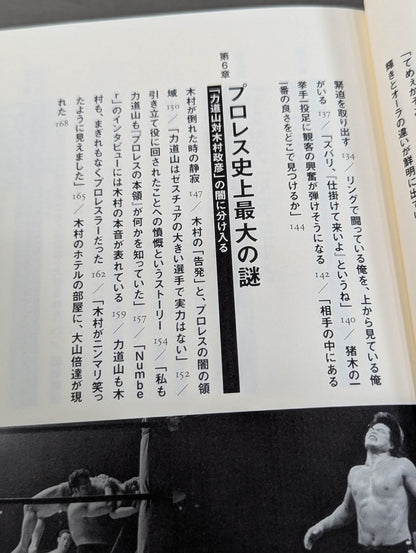 「てめえが
輝きとオーラの違いが鮮明に出て
緊迫を取り出す 134 ／リングで闘っている俺を、上から見ている俺
がいる 137 ／「ズバリ、「仕掛けて来いよ」というね」 140 ／猪木の一
挙手一投足に観客の興奮が弾けそうになる 142 ／「相手の中にある
一番の良さをどこで見つけるか」 144
第6章
プロレス史上最大の謎
「力道山対木村政彦」の闇に分け入る
木村が倒れた時の静寂 147 ／木村の「告発」と、プロレスの闇の領
域 150 ／「力道山はゼスチュアの大きい選手で実力はない」 152 ／
引き立て役に回されたことへの憤慨というストーリー 154 ／「私も
力道山も「プロレスの本領」が何かを知っていた」 157 ／「Numbe
r」のインタビューには木村の本音が表れている 159 ／力道山も木
村も、まぎれもなくプロレスラーだった 162 ／「木村がニンマリ笑っ
たように見えました」 165 ／木村のホテルの部屋に、大山倍達が現
れた 168